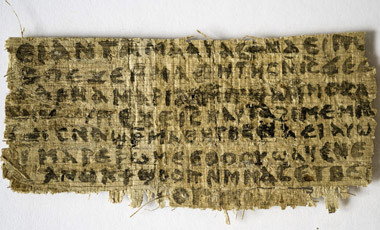 ⲁⲛ ⲧⲁⲙⲁⲁⲩ ⲁⲥϯ ⲛⲁⲉⲓ ⲡ
ⲡⲉϫⲉ ⲙⲙⲁⲑⲏⲧⲏⲥ ⲛⲓⲥ ϫⲉ
ⲁⲣⲛⲁ ⲙⲁⲣⲓⲁⲙ ⲙⲡϣⲁ ⲙⲙⲟⲥ ⲁ
ⲡⲉϫⲉ ⲓⲥ ⲛⲁⲩ ⲧⲁϩⲓⲙⲉ ⲙⲛ
ⲥⲛⲁϣⲣⲙⲁⲑⲏⲧⲏⲥ ⲛⲁⲉⲓ ⲁⲩⲱ
ⲙⲁⲣⲉⲣⲱⲙⲉ ⲉⲑⲟⲟⲩ ϣⲁϥⲉ ⲛⲉ
ⲁⲛⲟⲕ ϯϣⲟⲟⲡ ⲛⲙⲙⲁⲥ ⲉⲧⲃⲉ